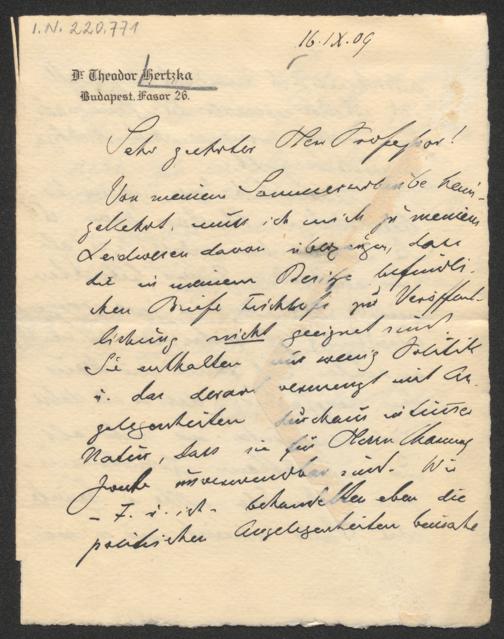 I.N. 220.771
16.IX.09
Dr Theodor Hertzka
Budapest. Fasor 26.
Sehr geehrter Herr Professor!
Von meinem Sommerurlaube heim-
gekehrt, muss ich mich zu meinem
Leidwesen davon überzeugen, dass
die in meinem Besitze befindli-
chen Briefe Fischhofs zur Veröffent-
lichung nicht geeignet sind.
Sie enthalten nur wenig Politik
u. das derart vermengt mit An-
gelegenheiten durchaus intimer
Natur, dass sie für Herrn
unverwendbar sind. Wir
– F. u. ich – behandelten eben die
politischen Angelegenheiten beinahe